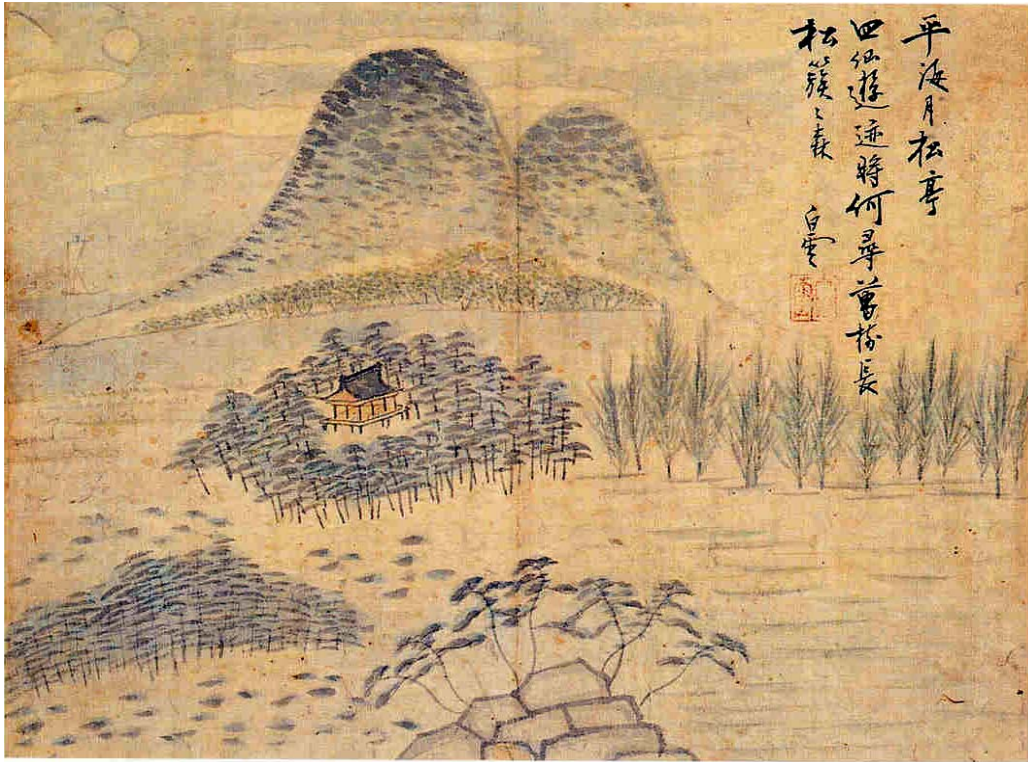 平海月松亭
四仙遊迹將何尋萬樹長
松簇〻森
白雲